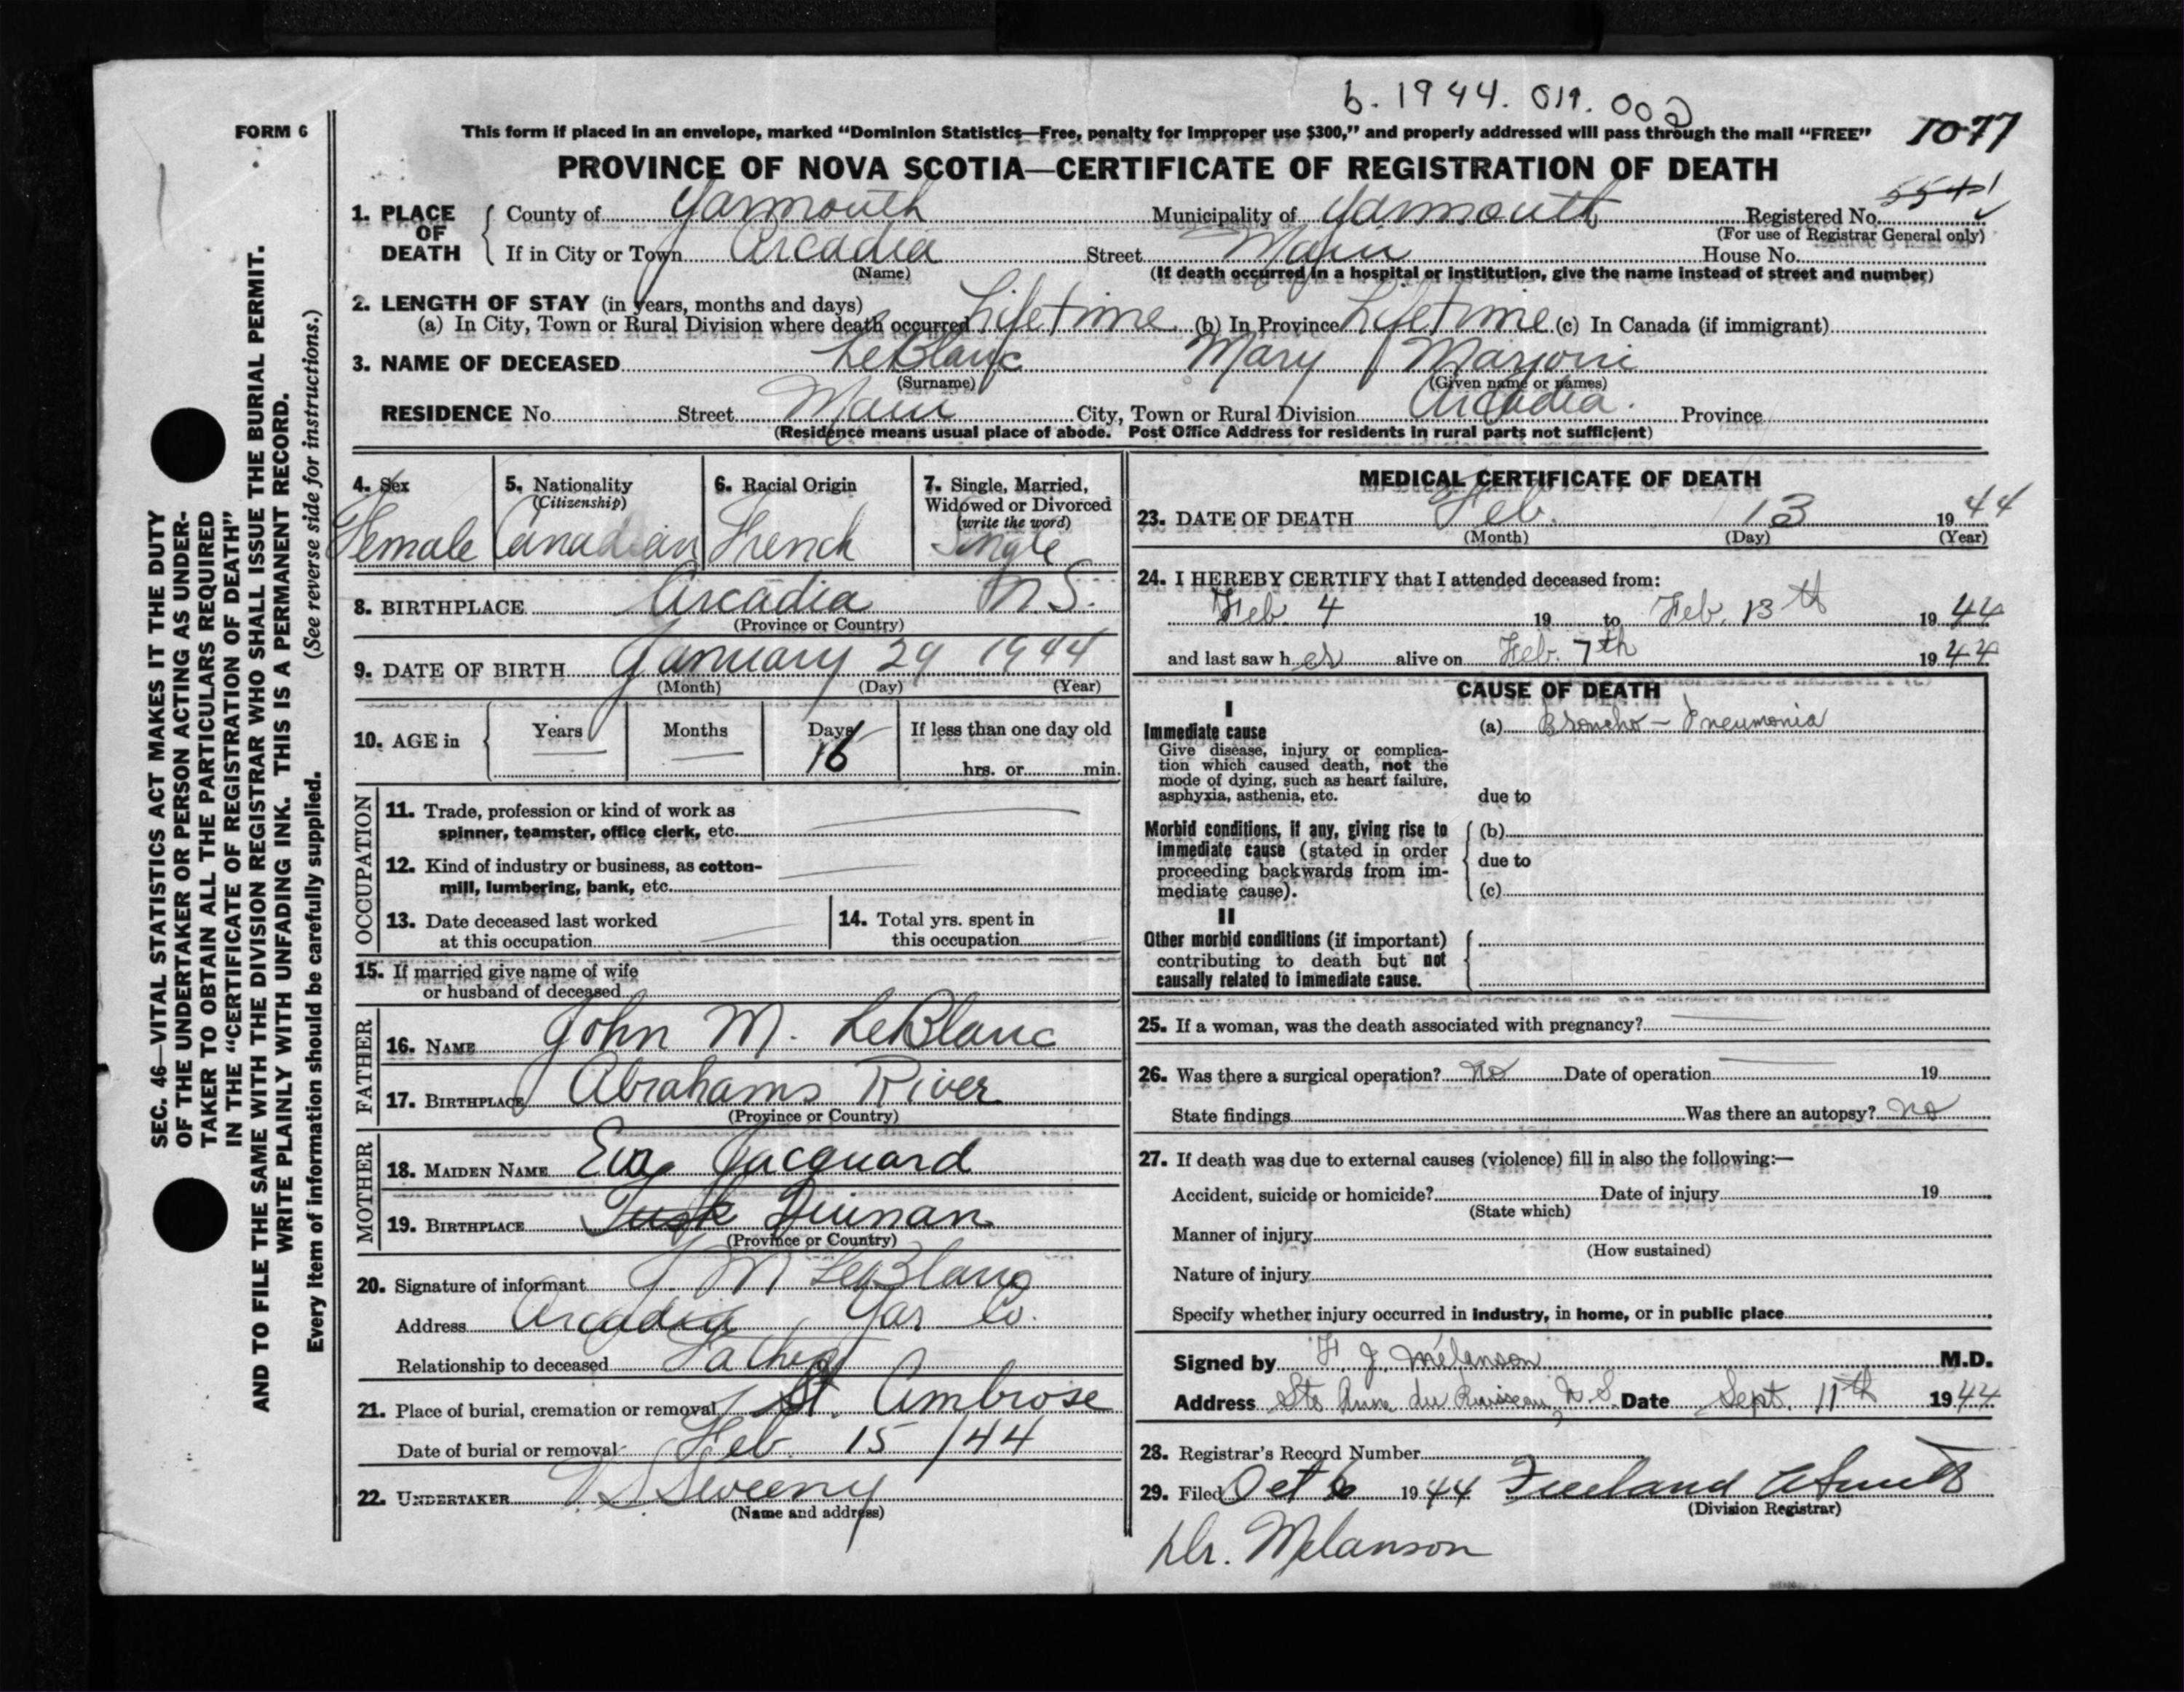 b. 1944. 019. 002
FORM 6
This form if placed in an envelope, marked “Dominion Statistics—Free, penalty for improper use $300,” and properly addressed will pass through the mail “FREE” 1077
PROVINCE OF NOVA SCOTIA—CERTIFICATE OF REGISTRATION OF DEATH
1. PLACE OF DEATH { County of Yarmouth Municipality of Yarmouth Registered No.
(For use of Registrar General only)
If in City or Town Arcadia Street Main House No.
(Name) (If death occurred in a hospital or institution, give the name instead of street and number)
2. LENGTH OF STAY (in years, months and days)
(a) In City, Town or Rural Division where death occurred Lifetime (b) In Province Lifetime (c) In Canada (if immigrant)
3. NAME OF DECEASED LeBlanc Mary Marjorie
(Surname) (Given name or names)
RESIDENCE No. Street Main City, Town or Rural Division Arcadia. Province
(Residence means usual place of abode. Post Office Address for residents in rural parts not sufficient)
4. Sex Female
5. Nationality (Citizenship) Canadian
6. Racial Origin French
7. Single, Married, Widowed or Divorced (write the word) Single
8. BIRTHPLACE Arcadia N S.
(Province or Country)
9. DATE OF BIRTH January 29 1944
(Month) (Day) (Year)
10. AGE in { Years — Months — Days 16 If less than one day old
hrs. or min.
OCCUPATION
11. Trade, profession or kind of work as
spinner, teamster, office clerk, etc.
12. Kind of industry or business, as cotton-
mill, lumbering, bank, etc.
13. Date deceased last worked
at this occupation
14. Total yrs. spent in
this occupation
15. If married give name of wife
or husband of deceased
FATHER
16. NAME John M. LeBlanc
17. BIRTHPLACE Abrahams River
(Province or Country)
MOTHER
18. MAIDEN NAME Eva Jacquard
19. BIRTHPLACE Tusk Quinan
(Province or Country)
20. Signature of informant J M LeBlanc
Address Arcadia Yar Co.
Relationship to deceased Father
21. Place of burial, cremation or removal St. Ambrose
Date of burial or removal Feb 15/44
22. UNDERTAKER V S Sweeny
(Name and address)
MEDICAL CERTIFICATE OF DEATH
23. DATE OF DEATH Feb. 13 1944
(Month) (Day) (Year)
24. I HEREBY CERTIFY that I attended deceased from:
Feb 4 19 to Feb. 13th 1944
and last saw her alive on Feb. 7th 1944
CAUSE OF DEATH
I
Immediate cause
Give disease, injury or complica-
tion which caused death, not the
mode of dying, such as heart failure,
asphyxia, asthenia, etc.
(a) Broncho – Pneumonia
due to
Morbid conditions, if any, giving rise to
immediate cause (stated in order
proceeding backwards from im-
mediate cause).
(b)
due to
(c)
II
Other morbid conditions (if important)
contributing to death but not
causally related to immediate cause.
25. If a woman, was the death associated with pregnancy?
26. Was there a surgical operation? no Date of operation 19
State findings Was there an autopsy? no
27. If death was due to external causes (violence) fill in also the following:—
Accident, suicide or homicide? Date of injury 19
(State which)
Manner of injury
(How sustained)
Nature of injury
Specify whether injury occurred in industry, in home, or in public place
Signed by F J Mélanson M.D.
Address Ste Anne du Ruisseau, N.S. Date Sept. 11th 1944
28. Registrar's Record Number
29. Filed Oct 6 1944 Freeland A Smith
(Division Registrar)
Dr. Melanson
SEC. 46—VITAL STATISTICS ACT MAKES IT THE DUTY
OF THE UNDERTAKER OR PERSON ACTING AS UNDER-
TAKER TO OBTAIN ALL THE PARTICULARS REQUIRED
IN THE “CERTIFICATE OF REGISTRATION OF DEATH”
AND TO FILE THE SAME WITH THE DIVISION REGISTRAR WHO SHALL ISSUE THE BURIAL PERMIT.
WRITE PLAINLY WITH UNFADING INK. THIS IS A PERMANENT RECORD.
Every item of information should be carefully supplied. (See reverse side for instructions.)